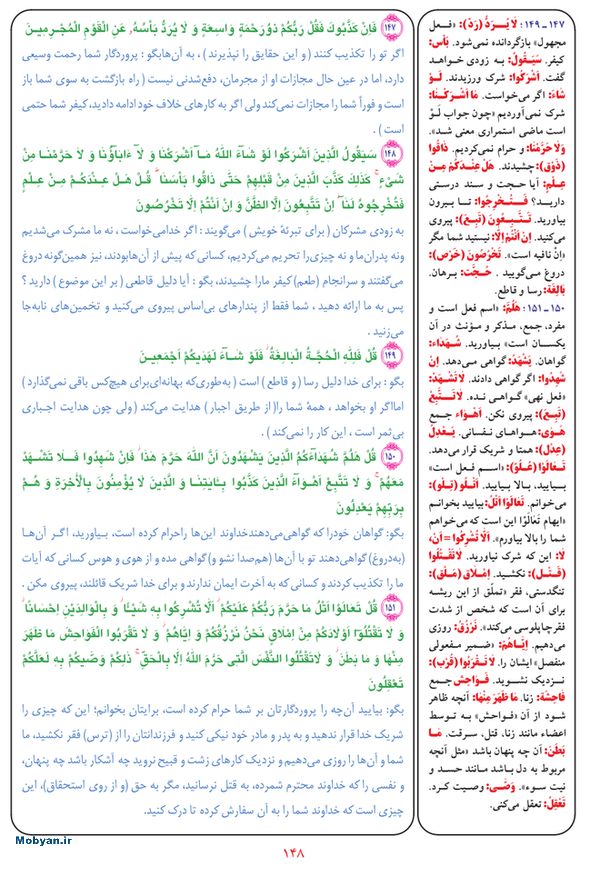 ۱۴۷ فَاِنْ كَذَّبُوكَ فَقُلْ رَبُّكُمْ ذُورَحْمَةٍ وَاسِعَةٍ وَ لَا يُرَدُّ بَأْسُهُ عَنِ الْقَوْمِ الْمُجْرِمينَ
اگر تو را تکذیب کنند ( و این حقایق را نپذیرند ) ، به آن‌هابگو : پروردگار شما رحمت وسیعی
دارد، اما در عین حال مجازات او از مجرمان، دفع‌شدنی نیست ( راه بازگشت به سوی شما باز
است و فوراً شما را مجازات نمی‌کند ولی اگر به کارهای خلاف خود ادامه دادید، کیفر شما حتمی
است ) .
۱۴۸ سَيَقُولُ الَّذينَ اَشْرَكُوا لَوْ شاءَ اللهُ ما اَشْرَكْنا وَ لا اباؤُنا وَ لا حَرَّمْنا مِنْ
شَىْءٍ كَذلِكَ كَذَّبَ الَّذينَ مِنْ قَبْلِهِمْ حَتّى ذاقُوا بَأْسَنا قُلْ هَلْ عِنْدَكُمْ مِنْ عِلْمٍ
فَتُخْرِجُوهُ لَنا اِنْ تَتَّبِعُونَ اِلاَّ الظَّنَّ وَ اِنْ اَنْتُمْ اِلاّ تَخْرُصُونَ
به زودی مشرکان ( برای تبرئهٔ خویش ) می‌گویند : اگر خدامی‌خواست ، نه ما مشرک می‌شدیم
ونه پدران‌ما و نه چیزی‌را تحریم می‌کردیم، کسانی‌که پیش از آن‌هابودند، نیز همین‌گونه دروغ
می‌گفتند و سرانجام (طعم) کیفر مارا چشیدند، بگو : آیا دلیل قاطعی ( بر این موضوع ) دارید ؟
پس به ما ارائه دهید ، شما فقط از پندارهای بی‌اساس پیروی می‌کنید و تخمین‌های نابه‌جا
می‌زنید .
۱۴۹ قُلْ فَلِلّهِ الْحُجَّةُ الْبالِغَةُ فَلَوْ شاءَ لَهَديكُمْ اَجْمَعينَ
بگو : برای خدا دلیل رسا ( و قاطع ) است ( به‌طوری‌که بهانه‌ای‌برای هیچ‌کس باقی نمی‌گذارد )
امااگر او بخواهد ، همهٔ شما را( از طریق اجبار ) هدایت می‌کند ( ولی چون هدایت اجباری
بی‌ثمر است ، این کار را نمی‌کند ) .
۱۵۰ قُلْ هَلُمَّ شُهَداءَكُمُ الَّذينَ يَشْهَدُونَ اَنَّ اللهَ حَرَّمَ هذا فَاِنْ شَهِدُوا فَلا تَشْهَدْ
مَعَهُمْ وَ لا تَتَّبِعْ اَهْواءَ الَّذينَ كَذَّبُوا بِاياتِنا وَ الَّذينَ لا يُؤْمِنُونَ بِالْاخِرَةِ وَ هُمْ
بِرَبِّهِمْ يَعْدِلُونَ
بگو: گواهان خودرا که گواهی‌می‌دهندخداوند این‌ها راحرام کرده است، بیاورید، اگر آن‌ها
(به‌دروغ) گواهی‌دهند تو با آن‌ها (هم‌صدا نشو و) گواهی مده و از هوی و هوس کسانی که آیات
ما را تکذیب کردند و کسانی که به آخرت ایمان ندارند و برای خدا شریک قائلند، پیروی مکن .
۱۵۱ قُلْ تَعالَوْا اَتْلُ ما حَرَّمَ رَبُّكُمْ عَلَيْكُمْ اَلاّ تُشْرِكُوا بِهِ شَيْئًا وَ بِالْوالِدَيْنِ اِحْسانًا
وَ لا تَقْتُلُوا اَوْلادَكُمْ مِنْ اِمْلاقٍ نَحْنُ نَرْزُقُكُمْ وَ اِيّاهُمْ وَ لا تَقْرَبُوا الْفَواحِشَ ما ظَهَرَ
مِنْها وَ ما بَطَنَ وَ لاتَقْتُلُوا النَّفْسَ الَّتى حَرَّمَ اللهُ اِلاّ بِالْحَقِّ ذلِكُمْ وَصّيكُمْ بِهِ لَعَلَّكُمْ
تَعْقِلُونَ
بگو: بیایید آن‌چه را پروردگارتان بر شما حرام کرده است، برایتان بخوانم؛ این که چیزی را
شریک خدا قرار ندهید و به پدر و مادر خود نیکی کنید و فرزندانتان را از (ترس) فقر نکشید، ما
شما و آن‌ها را روزی می‌دهیم و نزدیک کارهای زشت و قبیح نروید چه آشکار باشد چه پنهان ،
و نفسی را که خداوند محترم شمرده، به قتل نرسانید، مگر به حق (و از روی استحقاق)، این
چیزی است که خداوند شما را به آن سفارش کرده تا درک کنید.
۱۴۷ـ ۱۴۹: لا يُرَدُّ (رَدّ): «فعل
مجهول» بازگردانده نمی‌شود. بَأْس:
کیفر. سَيَقُولُ: به زودی خواهد
گفت. اَشْرَكُوا: شرک ورزیدند. لَوْ
شاءَ: اگر می‌خواست. ما اَشْرَكْنا:
شرک نمی‌آوردیم «چون جواب لَوْ
است ماضی استمراری معنی شد».
وَلا حَرَّمْنا: و حرام نمی‌کردیم. ذاقُوا
(ذَوْق): چشیدند. هَلْ عِنْدَكُمْ مِنْ
عِلْمٍ: آیا حجت و سند درستی
دارید؟ فَتُخْرِجُوا: تا بیرون
بیاورید. تَتَّبِعُونَ (تَبِعَ): پیروی
می‌کنید. اِنْ اَنْتُمْ اِلاّ: نیستید شما مگر
«اِنْ نافیه است». تَخْرُصُونَ (خَرْص):
دروغ می‌گویید . حُجَّت: برهان.
بالِغَة: رسا و قاطع.
۱۵۰ـ ۱۵۱: هَلُمَّ: «اسم فعل است و
مفرد، جمع، مذکر و مؤنث در آن
یکسان است» بیاورید. شُهَداءَ:
گواهان. يَشْهَدُ: گواهی می‌دهد. اِنْ
شَهِدُوا: اگر گواهی دادند. لا تَشْهَدْ:
«فعل نهی» گواهی نده. لا تَتَّبِعْ
(تَبِعَ): پیروی نکن. اَهْواء جمع
هَوى: هواهای نفسانی. يَعْدِلُ
(عِدْل): همتا و شریک قرار می‌دهد.
تَعالَوْا (عُلُوّ): «اسم فعل است»
بیایید، بالا بیایید. اَتْلُو (تِلْو):
می‌خوانم. تَعالَوْا اَتْلُ: بیایید بخوانم
«ایهام تَعالَوْا این است که می‌خواهم
شما را بالا بیاورم». اَلاّ تُشْرِكُوا= اَنْ،
لا: این که شرک نیاورید. لا تَقْتُلُوا
(قَتْل): نکشید. اِمْلاق (مَلَق):
تنگدستی، فقر «تملّق از این ریشه
برای آن است که شخص از شدت
فقرچاپلوسی می‌کند». نَرْزُقُ: روزی
می‌دهیم. اِيّاهُمْ: «ضمیر مفعولی
منفصل» ایشان را. لا تَقْرَبُوا (قُرْب):
نزدیک نشوید. فَواحِش جمع
فاحِشَة: زنا. ما ظَهَرَ مِنْها: آنچه ظاهر
شود از آن «فواحش» به توسط
اعضاء مانند زنا، قتل، سرقت. ما
بَطَنَ: آن چه پنهان باشد «مثل آنچه
مربوط به دل باشد مانند حسد و
نیت سوء». وَصّى: وصیت کرد.
تَعْقِلُ: تعقل می‌کنی.
Mobyan.ir
۱۴۸